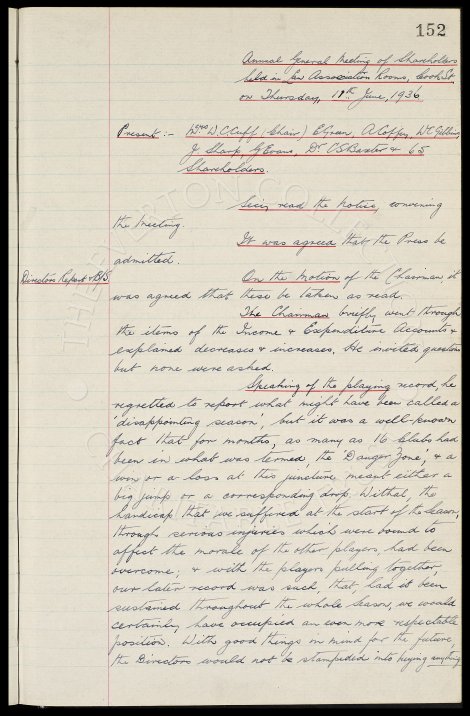 152
Annual General Meeting of Shareholders
held in Law Association Rooms, Cook St.
on Thursday, 11th June, 1936
Present:- Messrs W.C. Cuff (Chair) E Green, A. Coffey, W.C. Gibbins,
J Sharp G Evans, Dr C.S. Baxter & 65
Shareholders.
Secy read the notice, convening
the meeting.
It was agreed that the Press be
admitted.
Directors Report & B/S. On the motion of the Chairman, it
was agreed that these be taken as read.
The Chairman briefly went through
the items of the Income & Expenditure Accounts &
explained decreases & increases. He invited questions
but none were asked.
Speaking of the playing record, he
regretted to report what might have been called a
'disappointing season', but it was a well-known
fact that for months, as many as 16 Clubs had
been in what was termed, the 'Danger Zone', & a
win or a loss at this juncture meant either a
big jump or a corresponding drop. Withal, the
handicap that we suffered at the start of the Season,
through serious injuries which were bound to
affect the morale of the other players, had been
overcome, & with the players pulling together,
our later record was such, that, had it been
sustained throughout the whole season, we would
certainly have occupied an even more respectable
position. With good things in mind for the future,
the Directors would not be stampeded into buying anything
THE EVERTON COLLECTION